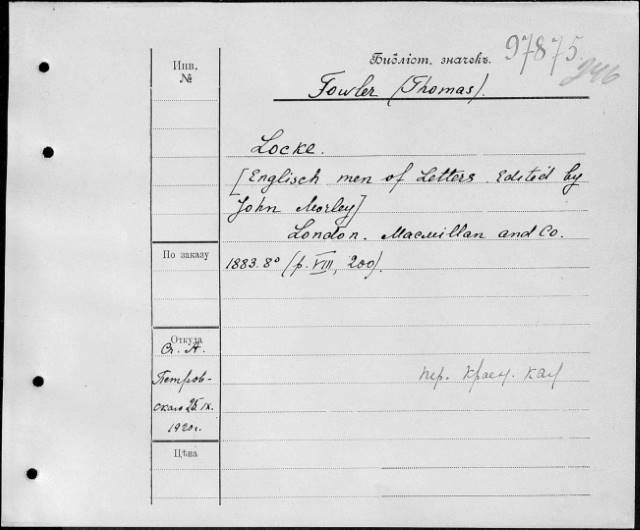 Инв.
№
Библіот. значекъ.
97875
946
Fowler (Thomas).
Locke.
[Englisch men of Letters. Edited by
John Morley]
London. Macmillan and Co.
По заказу
1883. 8° (p. VIII, 200).
Откуда
От А.
Петров-
скаго 25 IX.
1920 г.
пер. Краец. кал
Цѣна